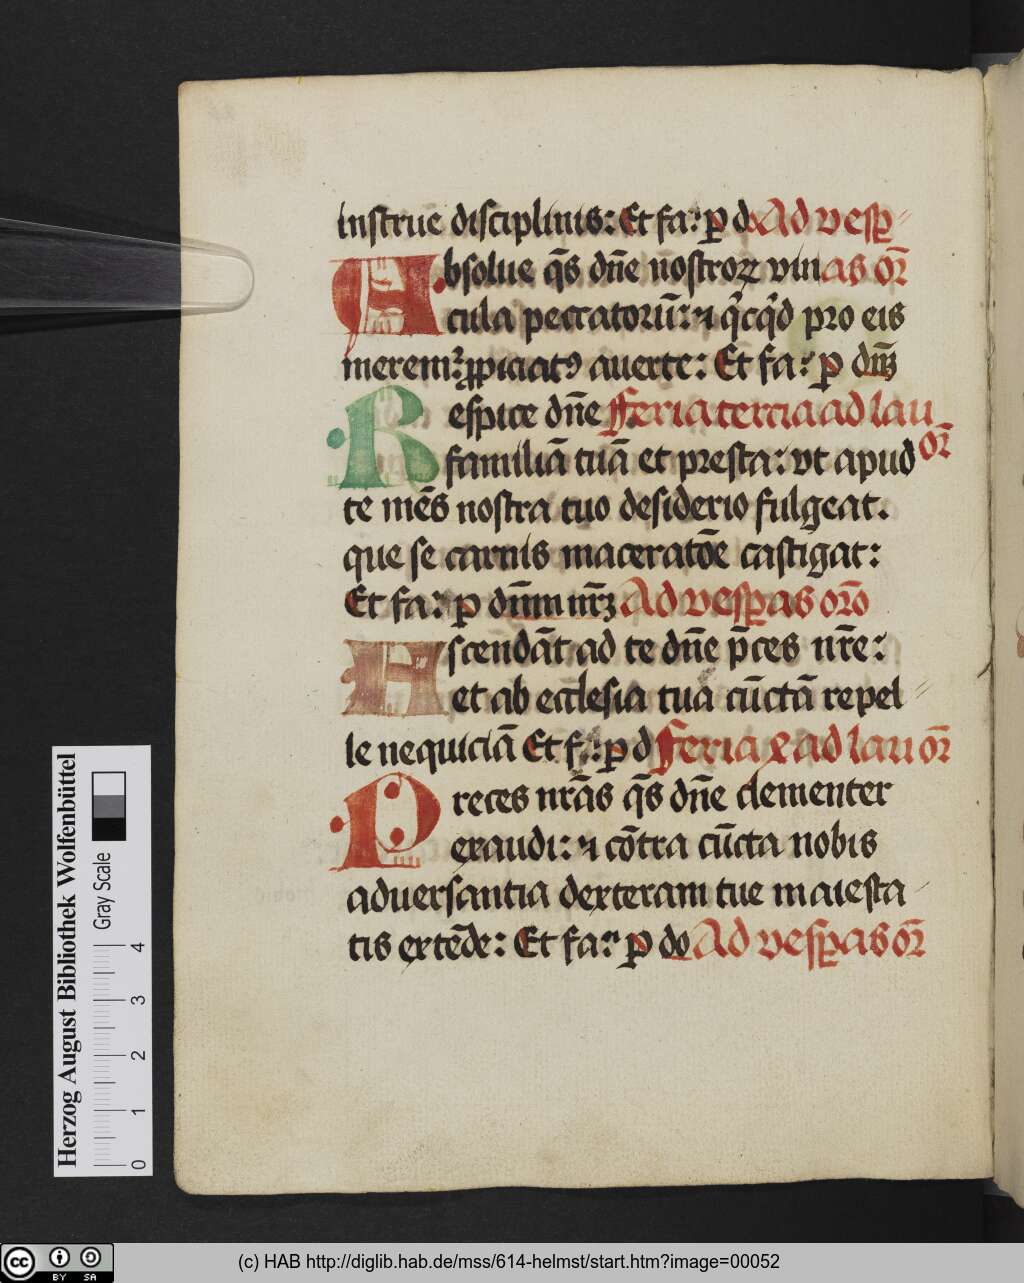 instrue disciplinis: Et fa: ꝑ d Ad vesꝑ
Absolue q̄s dn̄e nostroꝝ vin as or̄
cula peccatorū: ⁊ q̄cq̄d pro eis
merem᷑ ꝓpiciatꝰ auerte: Et fa: ꝑ dm̄
Respice dn̄e Feria tercia ad lau
familiā tuā et presta: vt apud or̄
te mēs nostra tuo desiderio fulgeat.
que se carnis maceratōe castigat:
Et fa: ꝑ dn̄m nr̄ꝫ Ad vesꝑas oro
Ascendāt ad te dn̄e p̄ces nr̄e:
et ab ecclesia tua cūctā repel
le nequiciā Et f: ꝑ d Feria 4 ad lau or̄
Preces nrās q̄s dn̄e clementer
exaudi: ⁊ cōtra cūcta nobis
aduersantia dexteram tue maiesta
tis extēde: Et fa: ꝑ do Ad vesꝑas or̄
Herzog August Bibliothek Wolfenbüttel
Gray Scale
0 1 2 3 4
cc BY SA
(c) HAB http://diglib.hab.de/mss/614-helmst/start.htm?image=00052